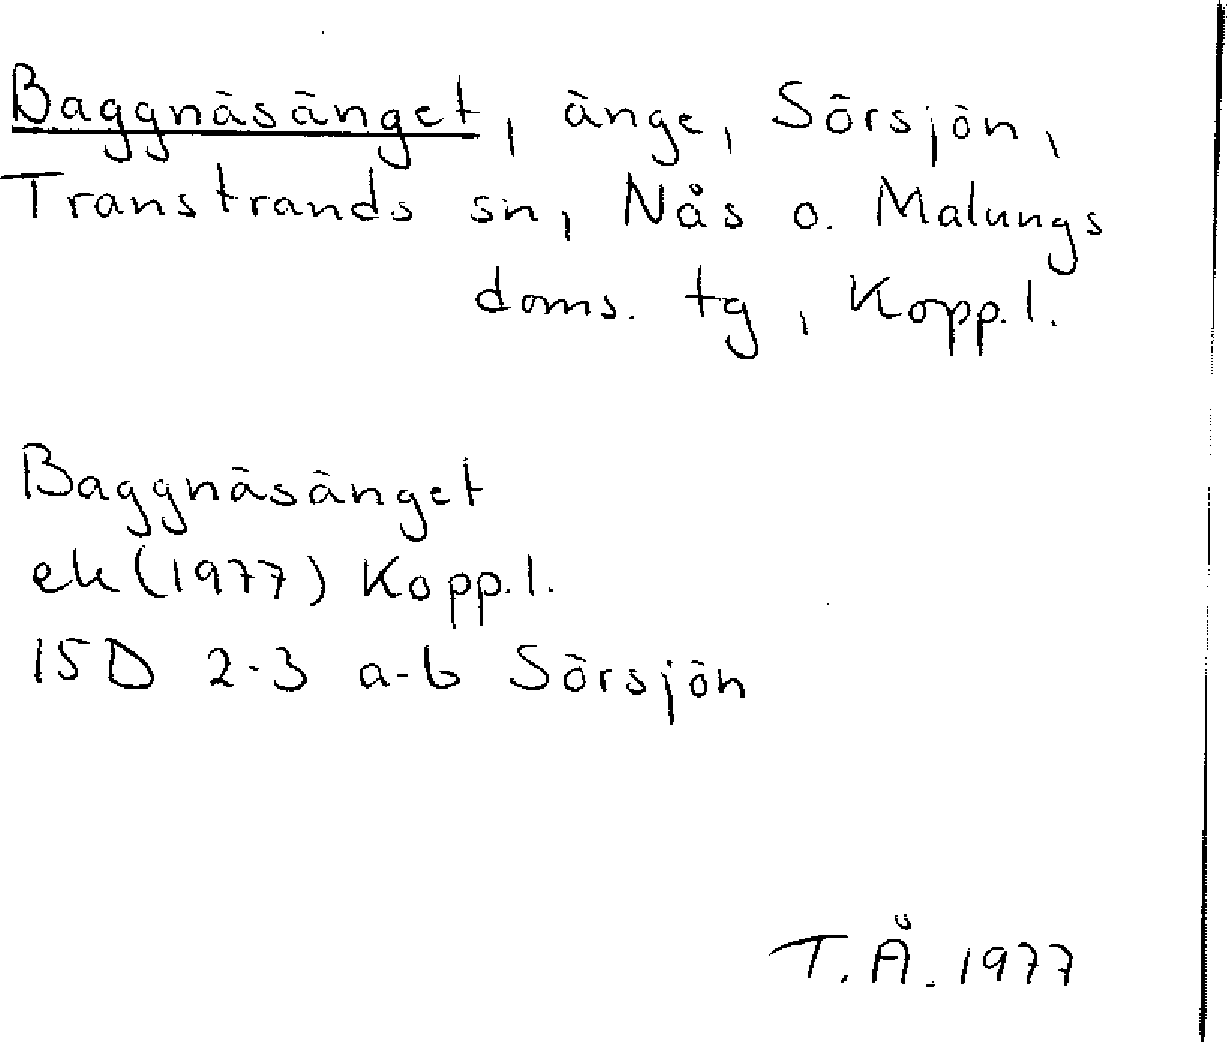 Baggnäsänget, änge, Sörsjön,
Transtrands sn, Nås o. Malungs
doms. tg, Kopp.l.
Baggnäsänget
ek (1977) Kopp.l.
15D 2-3 a-b Sörsjön
T.Å. 1977